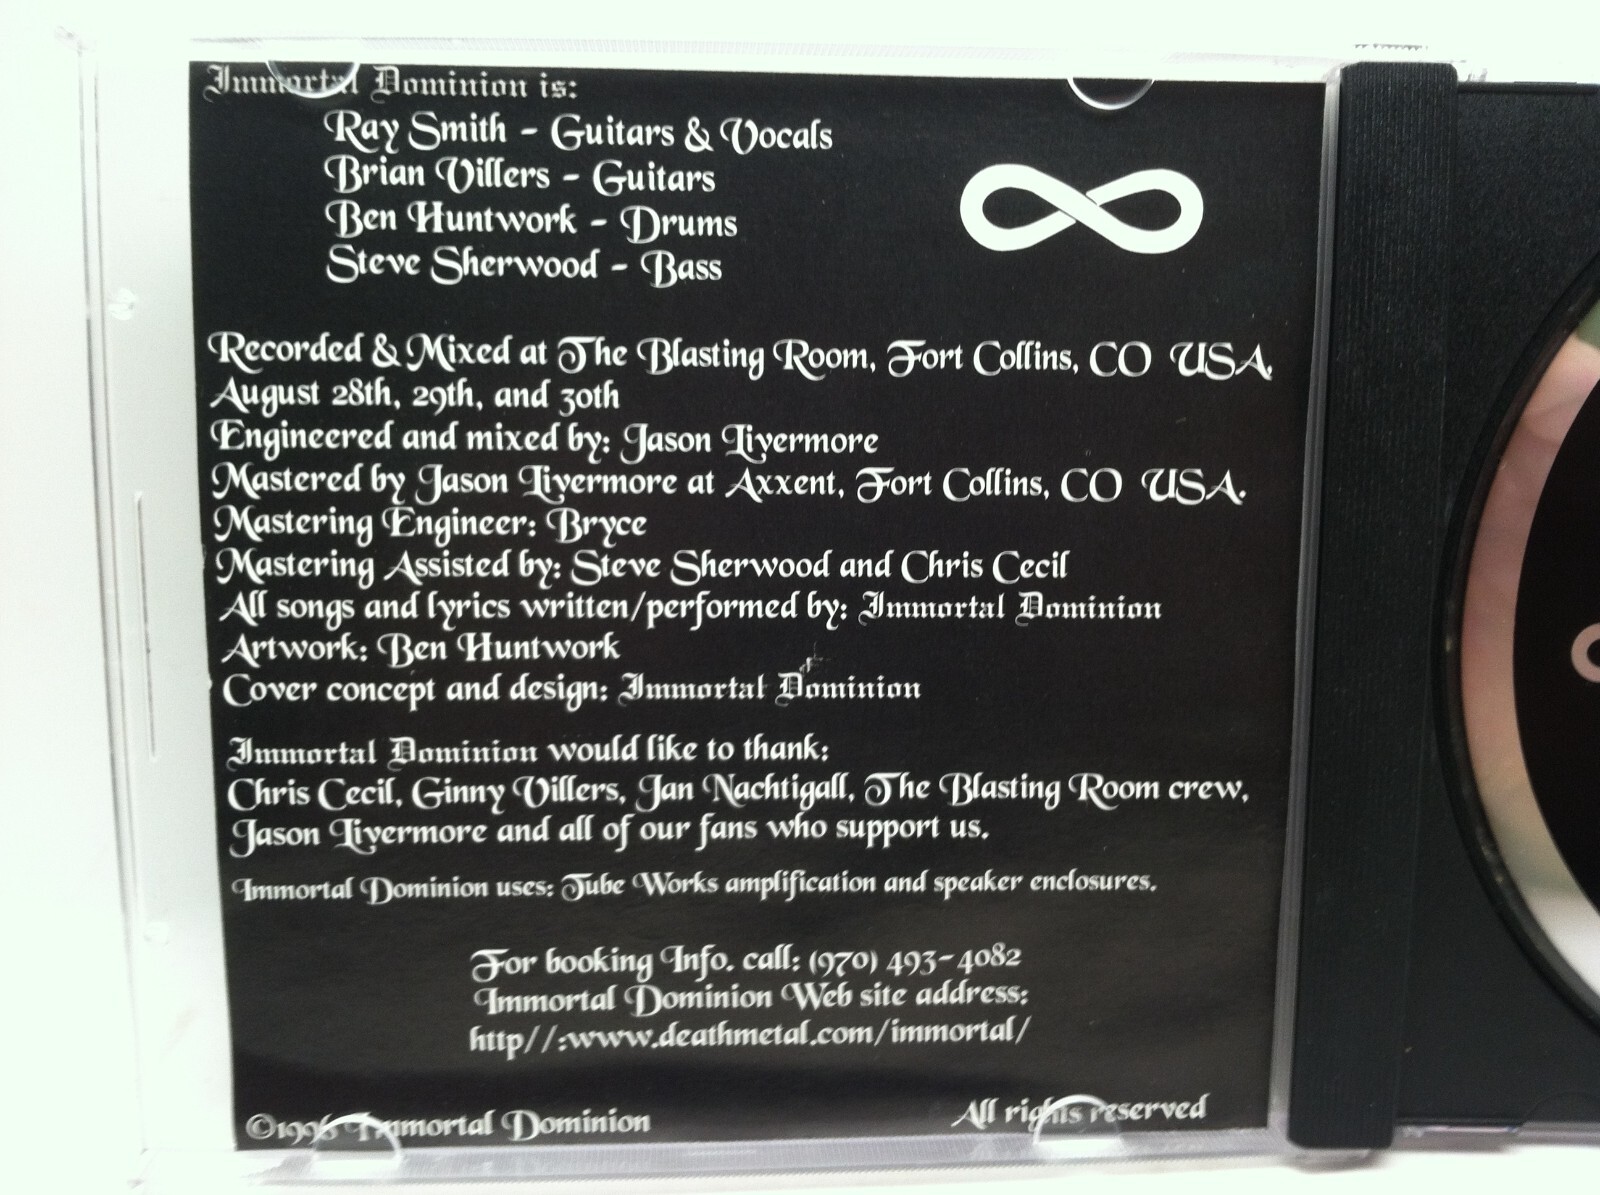 Immortal Dominion is:
Ray Smith - Guitars & Vocals
Brian Villers - Guitars
Ben Huntwork - Drums
Steve Sherwood - Bass
Recorded & Mixed at The Blasting Room, Fort Collins, CO USA.
August 28th, 29th, and 30th
Engineered and mixed by: Jason Livermore
Mastered by Jason Livermore at Axxent, Fort Collins, CO USA.
Mastering Engineer: Bryce
Mastering Assisted by: Steve Sherwood and Chris Cecil
All songs and lyrics written/performed by: Immortal Dominion
Artwork: Ben Huntwork
Cover concept and design: Immortal Dominion
Immortal Dominion would like to thank:
Chris Cecil, Ginny Villers, Jan Nachtigall, The Blasting Room crew,
Jason Livermore and all of our fans who support us.
Immortal Dominion uses: Tube Works amplification and speaker enclosures.
For booking Info. call: (970) 493-4082
Immortal Dominion Web site address:
http//:www.deathmetal.com/immortal/
©1996 Immortal Dominion
All rights reserved